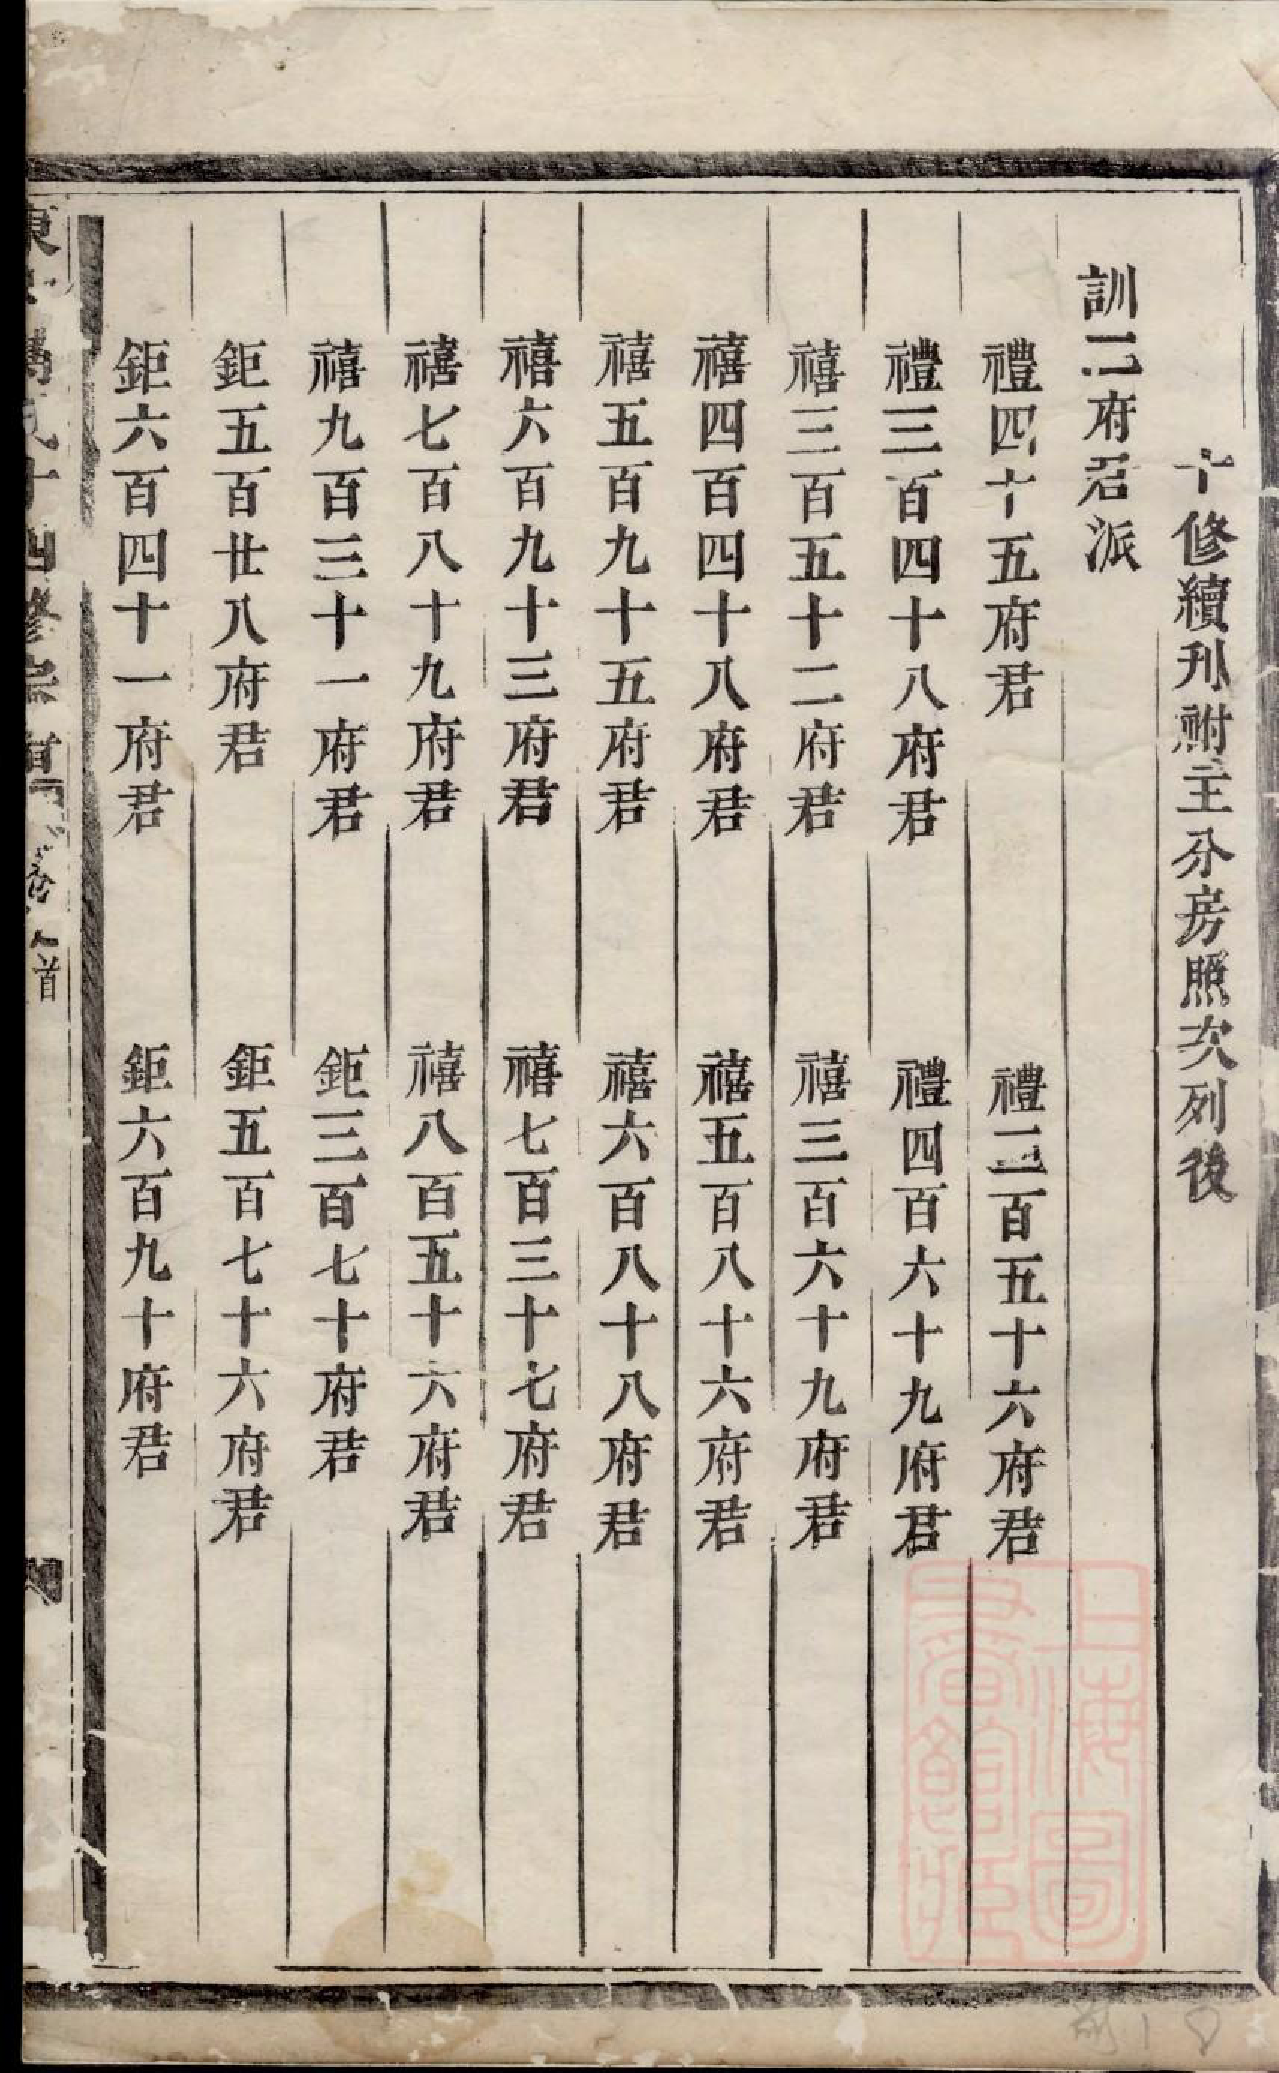 十修續刊祔主分房照次列後
訓二府君派
禮四十五府君 禮二百五十六府君
禮三百四十八府君 禮四百六十九府君
禧三百五十二府君 禧三百六十九府君
禧四百四十八府君 禧五百八十六府君
禧五百九十五府君 禧六百八十八府君
禧六百九十三府君 禧七百三十七府君
禧七百八十九府君 禧八百五十六府君
禧九百三十一府君 鉅三百七十府君
鉅五百廿八府君 鉅五百七十六府君
鉅六百四十一府君 鉅六百九十府君
氏十四修宗譜 卷之首
上海圖書館藏